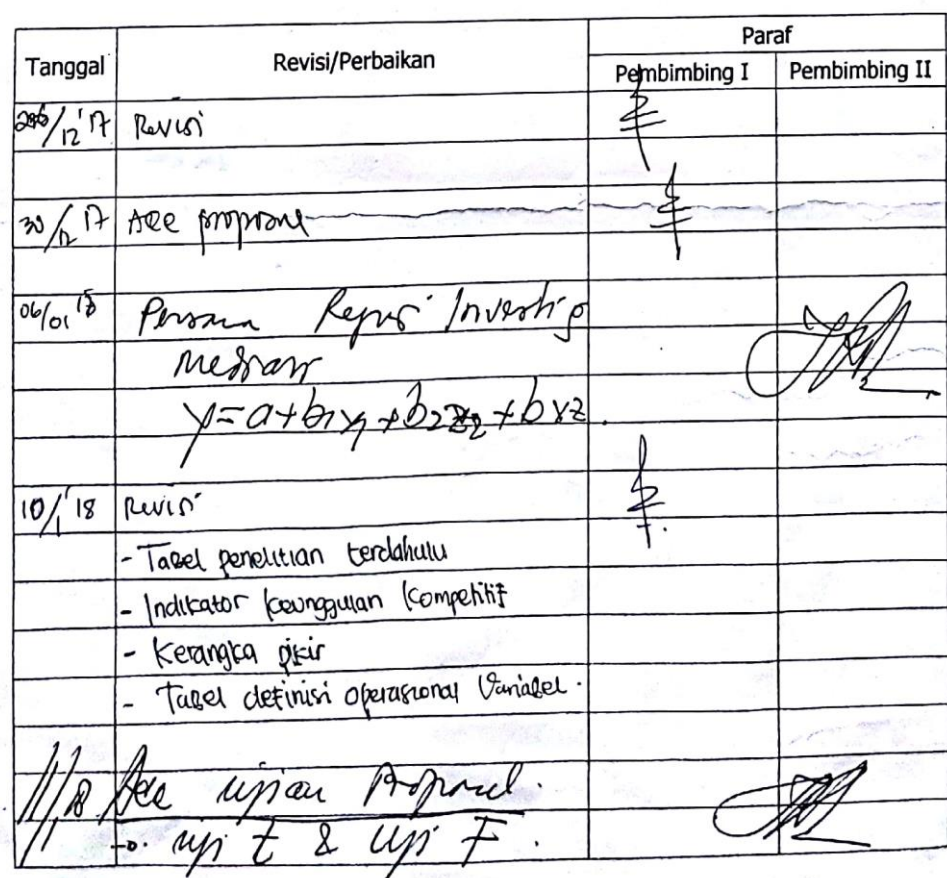 Tanggal Revisi/Perbaikan Paraf
Pembimbing I Pembimbing II
/12 '17 Revisi
30/12 17 Acc proposal
06/01 18
y = a + b1x1 + b2z2 + bxz.
10/1 '18 Revisi
- Tabel penelitian terdahulu
- Indikator keunggulan kompetitif
- Kerangka pikir
- Tabel definisi operasional Variabel.
11/1 18 Acc ujian Proposal.
-o. uji t & uji F.